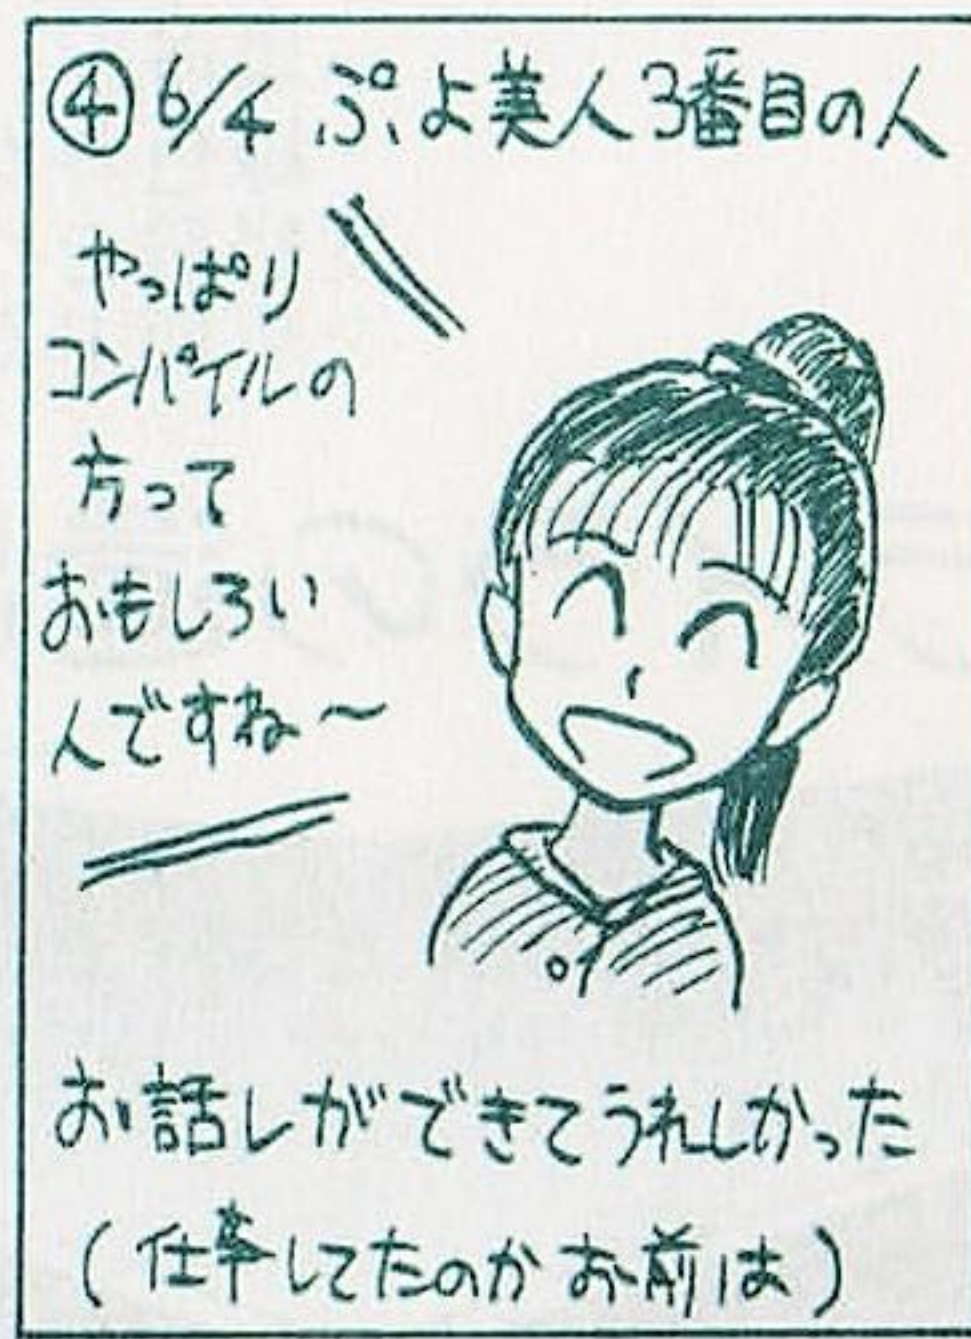 ④ 6/4 ぷよ美人3番目の人
やっぱり
コンパイルの
方って
おもしろい
人ですね〜
お話しができてうれしかった
(仕事してたのかお前は)